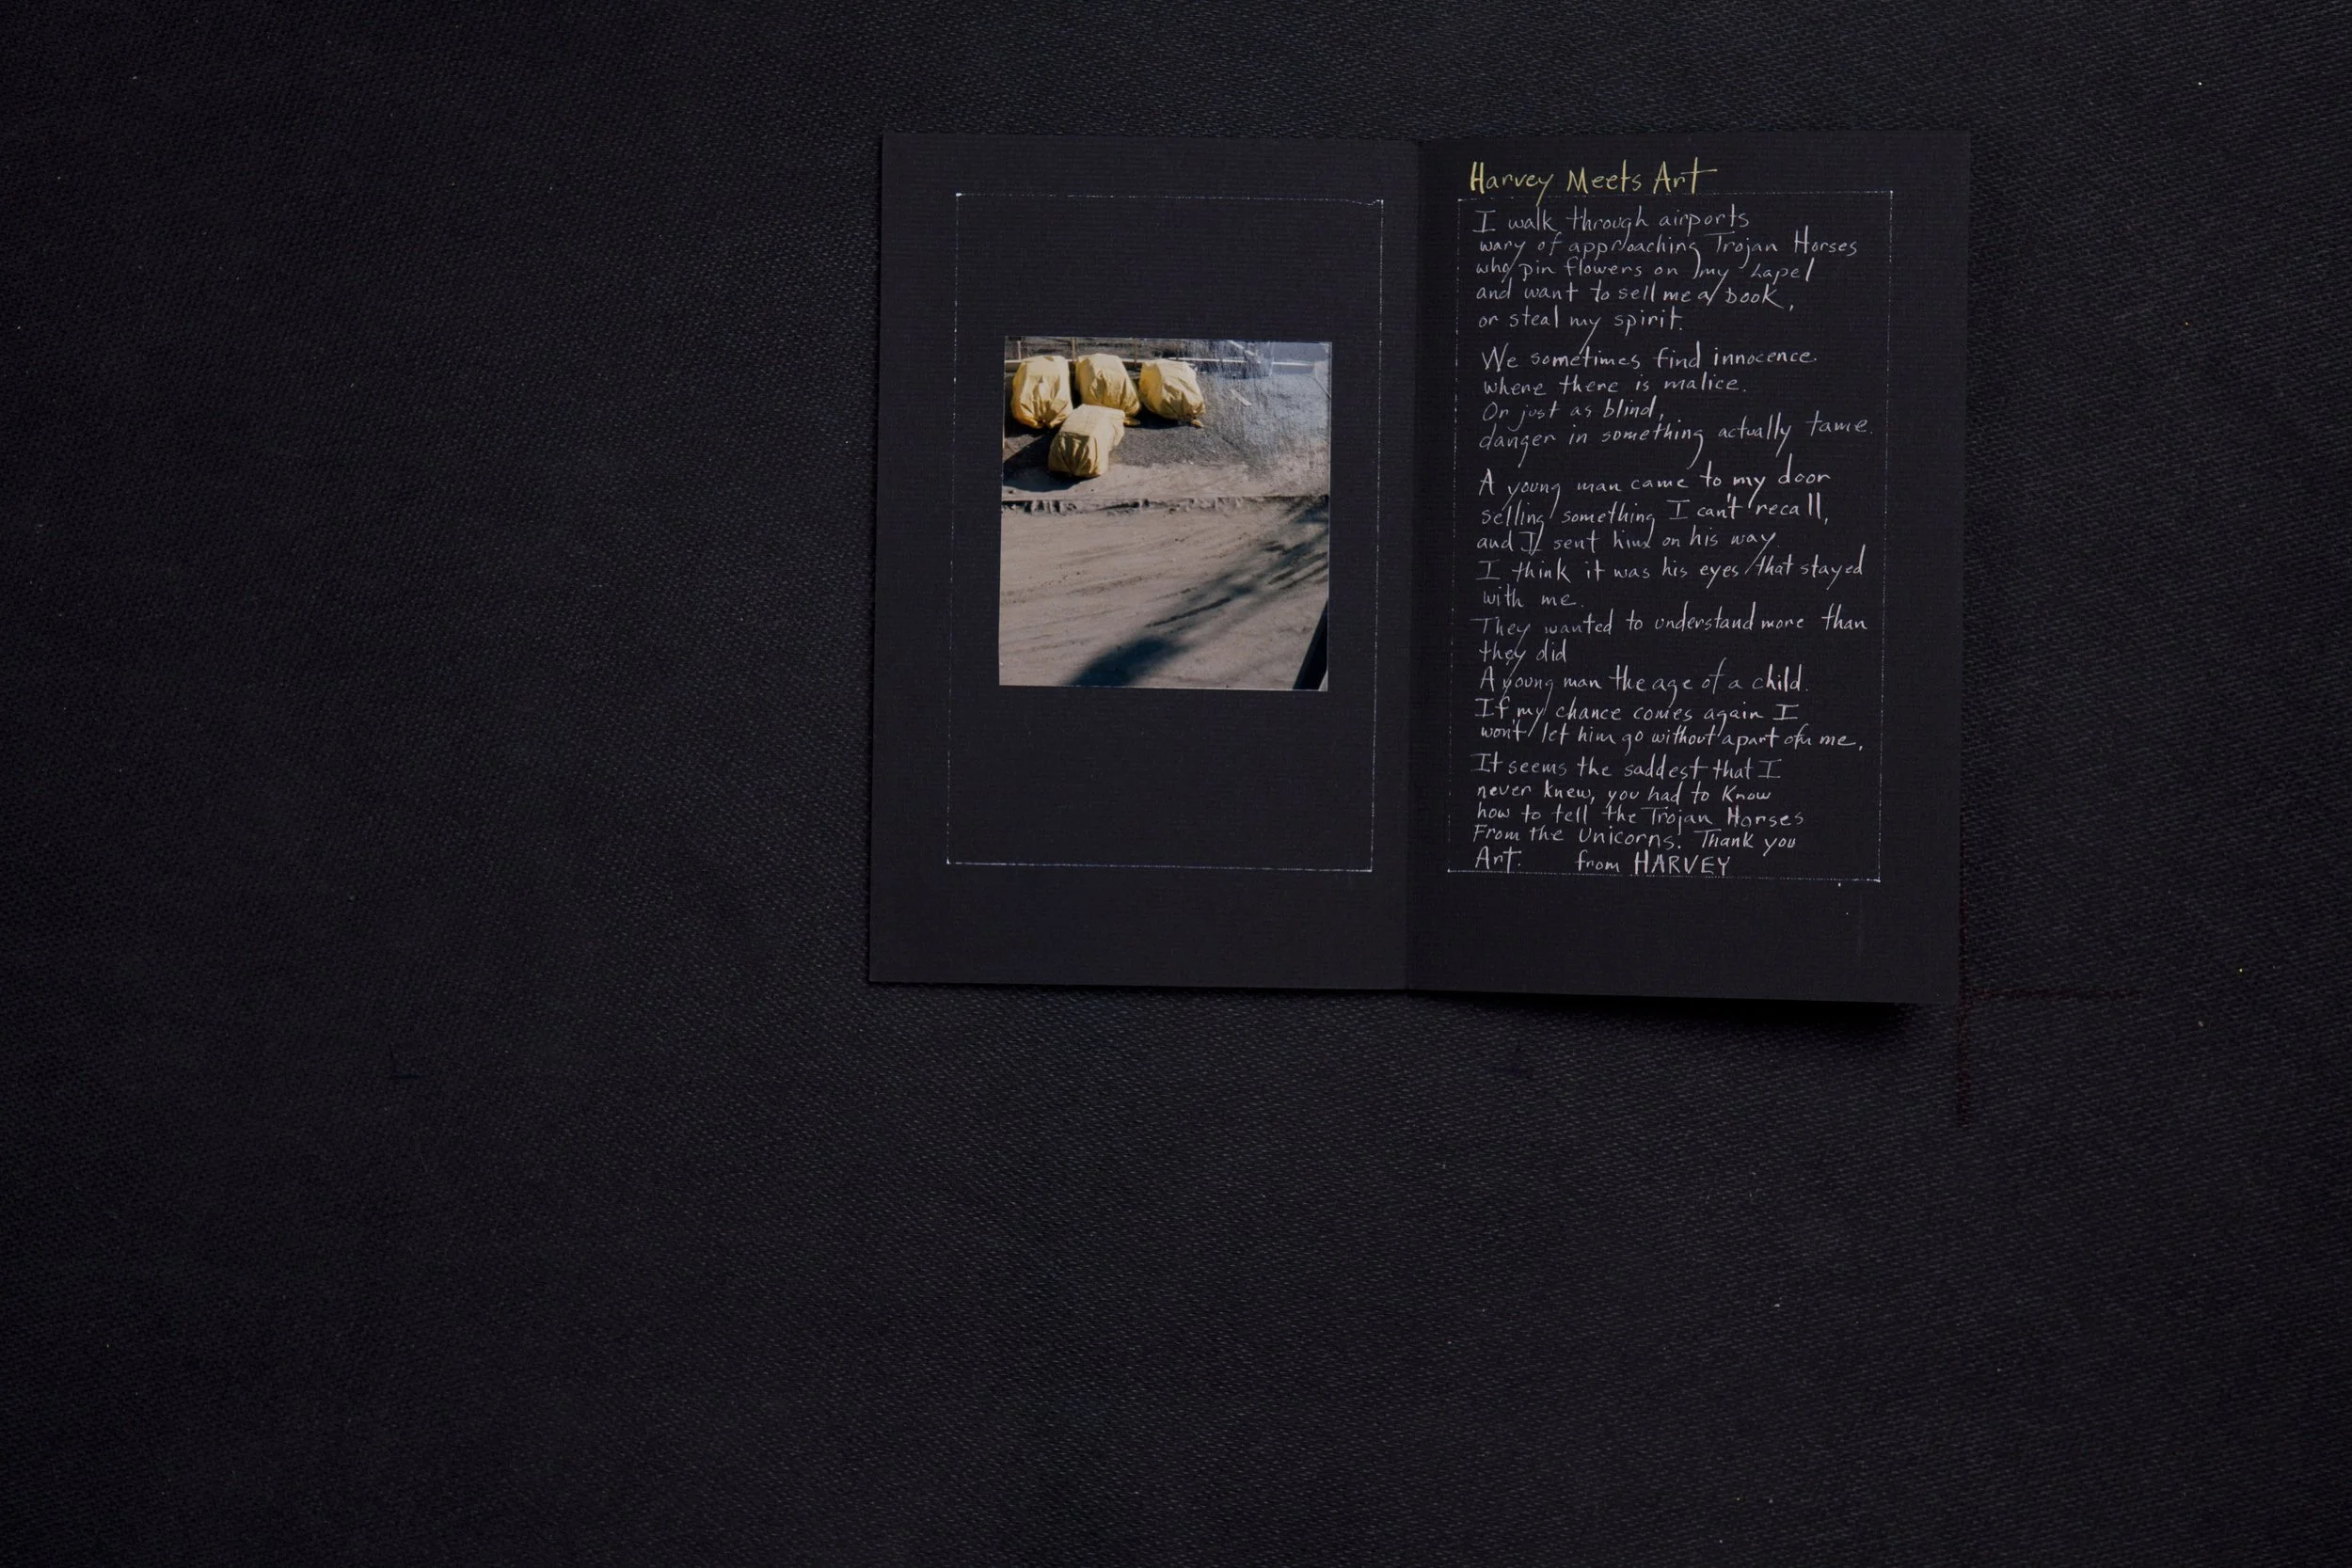 Harvey Meets Art
I walk through airports
wary of approaching Trojan Horses
who pin flowers on my Lapel
and want to sell me a book,
or steal my spirit.
We sometimes find innocence
where there is malice.
Or just as blind,
danger in something actually tame.
A young man came to my door
selling something I can't recall,
and I sent him on his way
I think it was his eyes that stayed
with me.
They wanted to understand more than
they did
A young man the age of a child.
If my chance comes again I
won't let him go without apart of me.
It seems the saddest that I
never knew, you had to Know
how to tell the Trojan Horses
From the Unicorns. Thank you
Art. from HARVEY